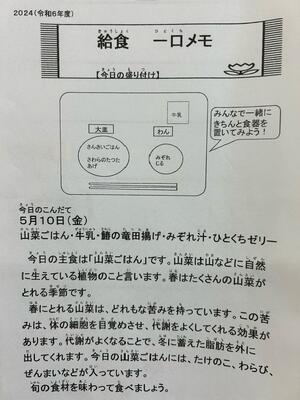 2024(令和6年度)
給食 一口メモ
【今日の盛り付け】
牛乳
大皿
わん
さんさいごはん
さわらのたつたあげ
みぞれじる
みんなで一緒に
きちんと食器を
置いてみよう!
今日のこんだて
5月10日(金)
山菜ごはん・牛乳・鰆の竜田揚げ・みぞれ汁・ひとくちゼリー
今日の主食は「山菜ごはん」です。山菜は山などに自然
に生えている植物のこと言います。春はたくさんの山菜が
とれる季節です。
春にとれる山菜は、どれもな苦みを持っています。この苦
みは、体の細胞を目覚めさせ、代謝をよくしてくれる効果が
あります。代謝がよくなることで、冬に蓄えた脂肪を外に
出してくれます。今日の山菜ごはんには、たけのこ、わらび、
ぜんまいなどが入っています。
旬の食材を味わって食べましょう。